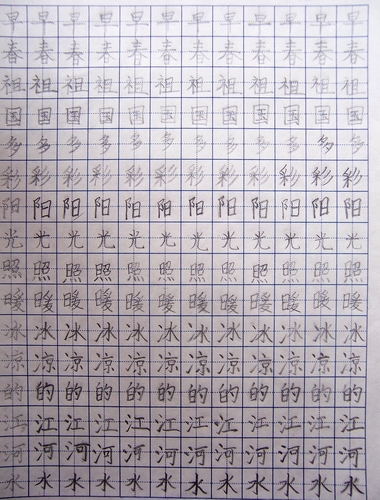 早早早早早早早早早早早早
春春春春春春春春春春春春
祖祖祖祖祖祖祖祖祖祖祖祖
国国国国国国国国国国国国
多多多多多多多多多多多多
彩彩彩彩彩彩彩彩彩彩彩彩
阳阳阳阳阳阳阳阳阳阳阳阳
光光光光光光光光光光光光
照照照照照照照照照照照照
暖暖暖暖暖暖暖暖暖暖暖暖
冰冰冰冰冰冰冰冰冰冰冰冰
凉凉凉凉凉凉凉凉凉凉凉凉
的的的的的的的的的的的的
江江江江江江江江江江江江
河河河河河河河河河河河河
水水水水水水水水水水水水